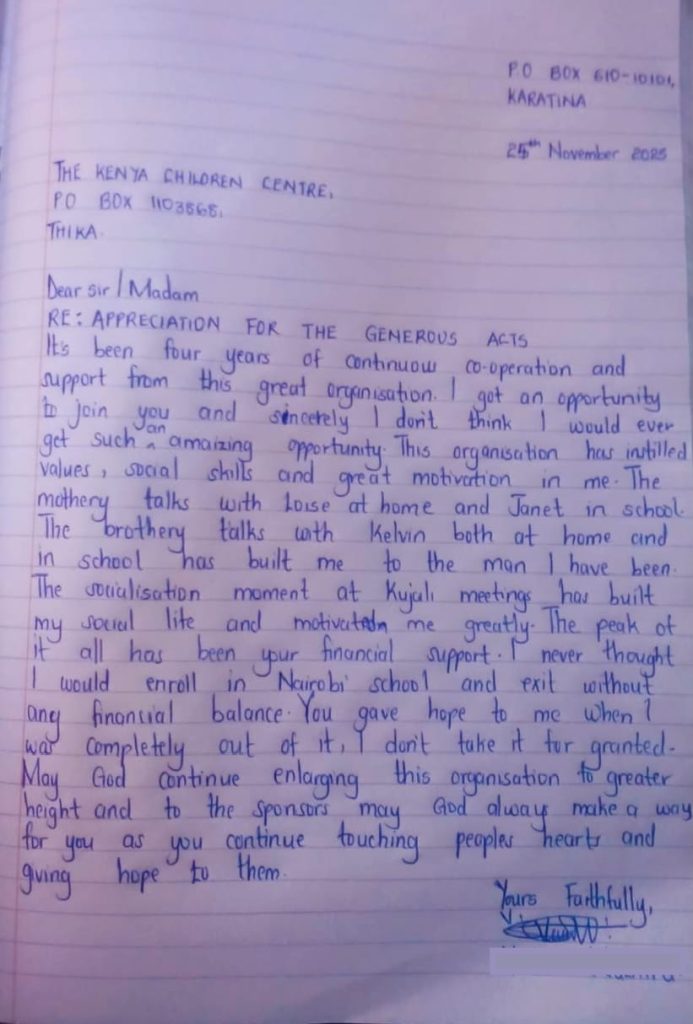 P.O BOX 610-10101,
KARATINA
25th November 2025
THE KENYA CHILDREN CENTRE,
PO BOX 1103868,
THIKA.
Dear sir / Madam
RE: APPRECIATION FOR THE GENEROUS ACTS
It's been four years of continuow co-operation and
support from this great organisation. I got an opportunity
to join you and sincerely I don't think I would ever
get such an amaizing opportunity. This organisation has instilled
values, social skills and great motivation in me. The
mothery talks with Loise at home and Janet in school.
The brothery talks with Kelvin both at home and
in school has built me to the man I have been.
The socialisation moment at Kujali meetings has built
my social life and motivated me greatly. The peak of
it all has been your financial support. I never thought
I would enroll in Nairobi school and exit without
any financial balance. You gave hope to me when I
was completely out of it, I don't take it for granted.
May God continue enlarging this organisation to greater
height and to the sponsors may God always make a way
for you as you continue touching peoples hearts and
giving hope to them.
Yours Faithfully,